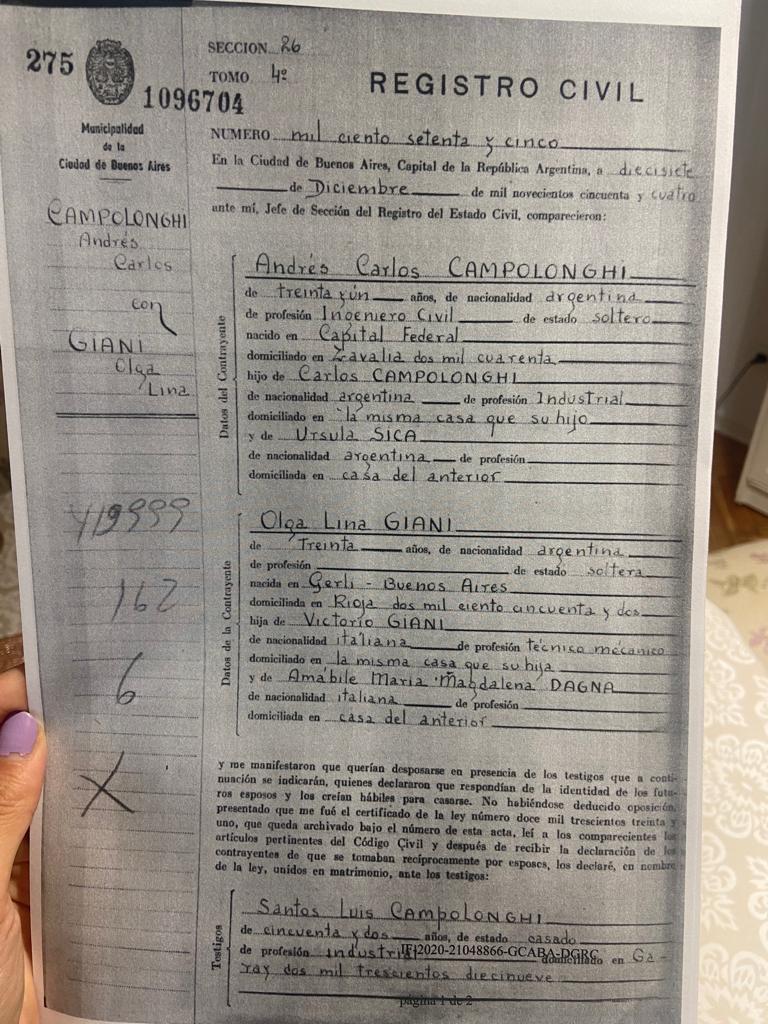 275
1096704
Municipalidad
de la
Ciudad de Buenos Aires
CAMPOLONGHI
Andrés
Carlos
con
GIANI
Olga
Lina
162
6
X
SECCION 26
TOMO 4º
REGISTRO CIVIL
NUMERO mil ciento setenta y cinco
En la Ciudad de Buenos Aires, Capital de la República Argentina, a diecisiete
de Diciembre de mil novecientos cincuenta y cuatro
ante mí, Jefe de Sección del Registro del Estado Civil, comparecieron:
Datos del Contrayente
Andrés Carlos CAMPOLONGHI
de treinta y ún años, de nacionalidad argentina
de profesión Ingeniero Civil de estado soltero
nacido en Capital Federal
domiciliado en Zavalia dos mil cuarenta
hijo de Carlos CAMPOLONGHI
de nacionalidad argentina de profesión Industrial
domiciliado en la misma casa que su hijo
y de Ursula SICA
de nacionalidad argentina de profesión
domiciliada en casa del anterior
Datos de la Contrayente
Olga Lina GIANI
de Treinta años, de nacionalidad argentina
de profesión de estado soltera
nacida en Gerli - Buenos Aires
domiciliada en Rioja dos mil ciento cincuenta y dos
hija de Victorio GIANI
de nacionalidad italiana de profesión técnico mecánico
domiciliado en la misma casa que su hija
y de Amábile Maria Magdalena DAGNA
de nacionalidad italiana de profesión
domiciliada en casa del anterior
y me manifestaron que querían desposarse en presencia de los testigos que a conti-
nuación se indicarán, quienes declararon que respondían de la identidad de los futu-
ros esposos y los creían hábiles para casarse. No habiéndose deducido oposición,
presentado que me fué el certificado de la ley número doce mil trescientos treinta y
uno, que queda archivado bajo el número de esta acta, leí a los comparecientes los
artículos pertinentes del Código Civil y después de recibir la declaración de los
contrayentes de que se tomaban recíprocamente por esposos, los declaré, en nombre
de la ley, unidos en matrimonio, ante los testigos:
Testigos
Santos Luis CAMPOLONGHI
de cincuenta y dos años, de estado casado
de profesión industrial domiciliado en Ga-
IF-2020-21048866-GCABA-DGRC
ray dos mil trescientos diecinueve
página 1 de 2